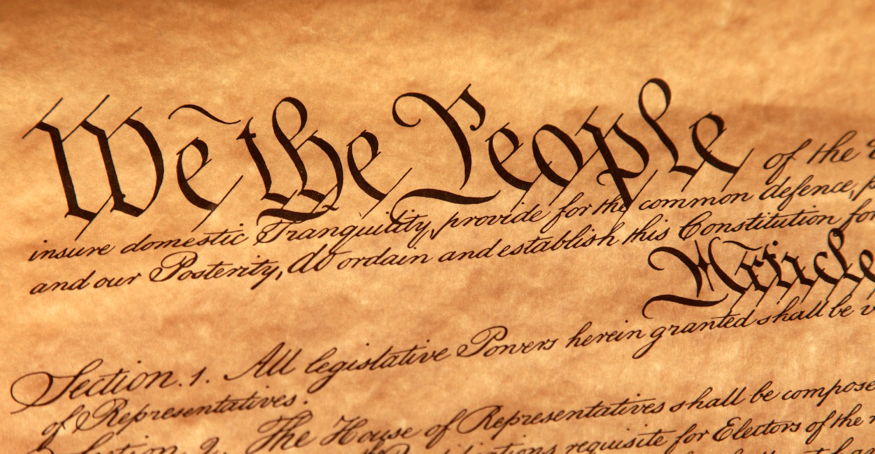 We the People of the
insure domestic Tranquility, provide for the common defence,
and our Posterity, do ordain and establish this Constitution for
Article
Section. 1. All legislative Powers herein granted shall be
of Representatives.
Section. 2. The House of Representatives shall be
requisite for Electors of the